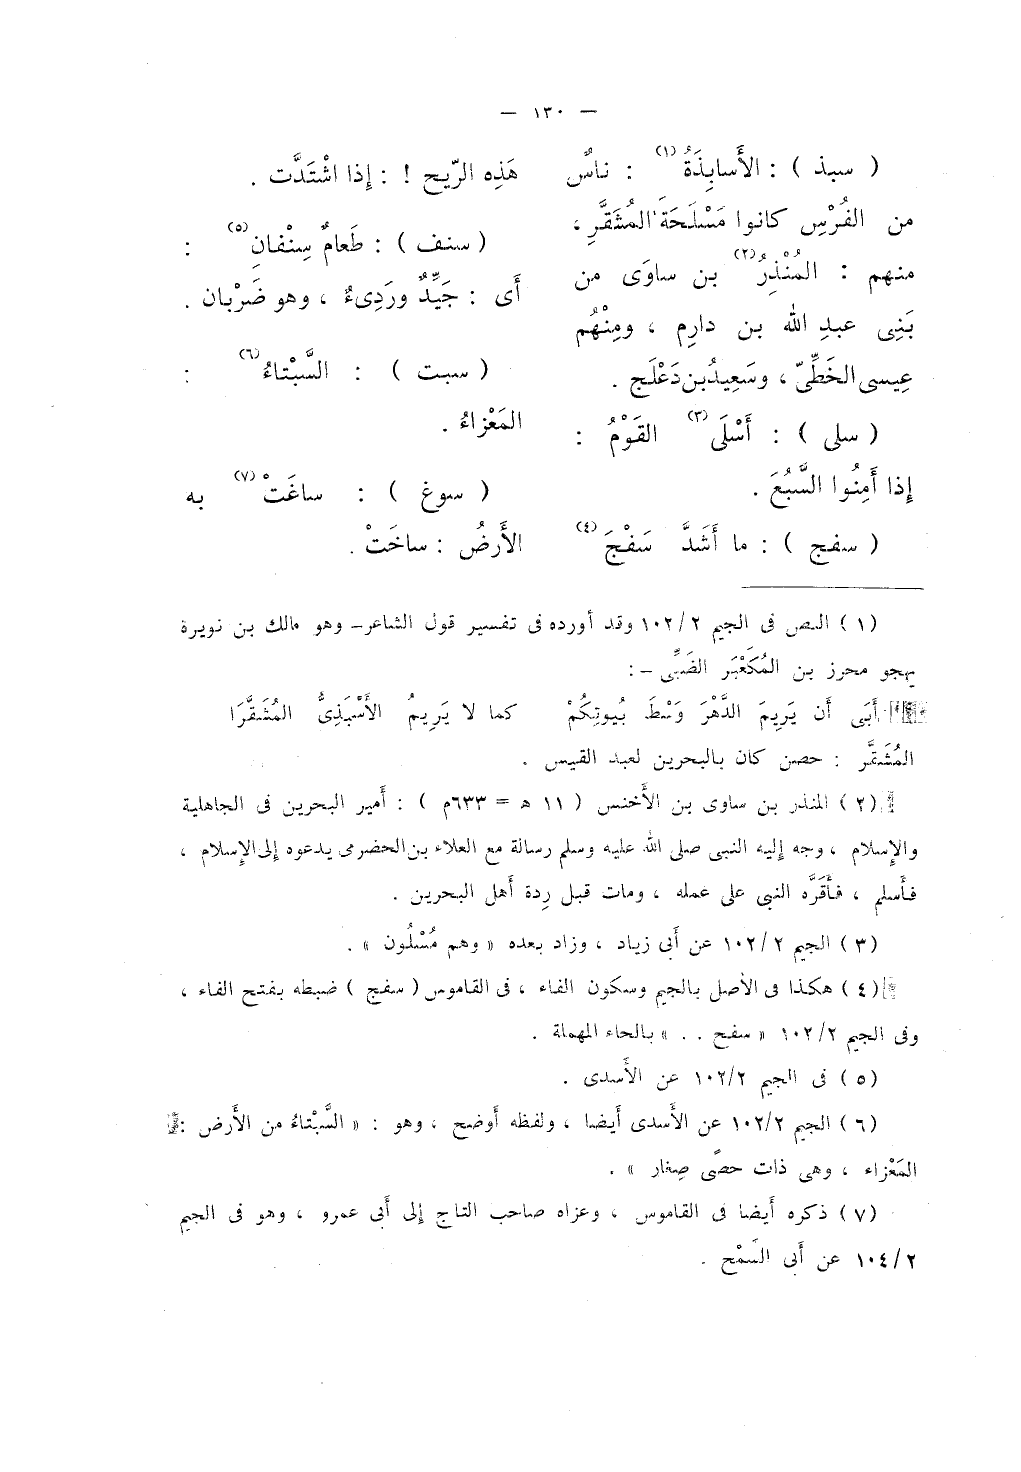 — ١٣٠ —
( سبذ ) : الأَسابِذَةُ (١) : ناسٌ
من الفُرْسِ كانوا مَسْلَحَةَ المُشَقَّرِ ،
منهم : المُنْذِرُ (٢) بن ساوَى من
بَنِى عبدِ الله بن دارِم ، ومِنْهُم
عِيسى الخَطِّىّ ، وسَعِيدُ بن دَعْلَج .
( سلى ) : أَسْلَى (٣) القَوْمُ :
إذا أَمِنُوا السَّبُعَ .
( سفج ) : ما أَشَدَّ سَفْجَ (٤)
هَذِه الرّيح ! : إذا اشْتَدَّت .
( سنف ) : طَعامٌ سِنْفانِ (٥) :
أَى : جَيِّدٌ ورَدِىءٌ ، وهو ضَرْبان .
( سبت ) : السَّبْتاءُ (٦) :
المَعْزاءُ .
( سوغ ) : ساغَتْ (٧) به
الأَرضُ : ساخَتْ .
(١) النص فى الجيم ١٠٢/٢ وقد أورده فى تفسير قول الشاعر – وهو مالك بن نويرة
يهجو محرز بن المُكَعْبَر الضَبِّى – :
أَبَى أن يَرِيمَ الدَّهْرَ وَسْطَ بُيوتِكُمْ كما لا يَرِيمُ الأَسْبَذِىُّ المُشَقَّرَا
المُشَقَّر : حصن كان بالبحرين لعبد القيس .
(٢) المنذر بن ساوى بن الأَخنس ( ١١ ه = ٦٣٣م ) : أَمير البحرين فى الجاهلية
والإسلام ، وجه إليه النبى صلى الله عليه وسلم رسالة مع العلاء بن الحضرمى يدعوه إلى الإسلام ،
فأَسلم ، فأَقَرَّه النبى على عمله ، ومات قبل رِدة أَهل البحرين .
(٣) الجيم ١٠٢/٢ عن أَبى زياد ، وزاد بعده « وهم مُسْلُون » .
(٤) هكذا فى الأصل بالجيم وسكون الفاء ، فى القاموس ( سفج ) ضبطه بفتح الفاء ،
وفى الجيم ١٠٢/٢ « سفح . . » بالحاء المهملة .
(٥) فى الجيم ١٠٢/٢ عن الأَسدى .
(٦) الجيم ١٠٢/٢ عن الأَسدى أَيضا ، ولفظه أَوضح ، وهو : « السَّبْتاءُ من الأَرض :
المَعْزاء ، وهى ذات حصًى صِغار » .
(٧) ذكره أَيضا فى القاموس ، وعزاه صاحب التاج إلى أَبى عمرو ، وهو فى الجيم
١٠٤/٢ عن أَبى السَّمْح .